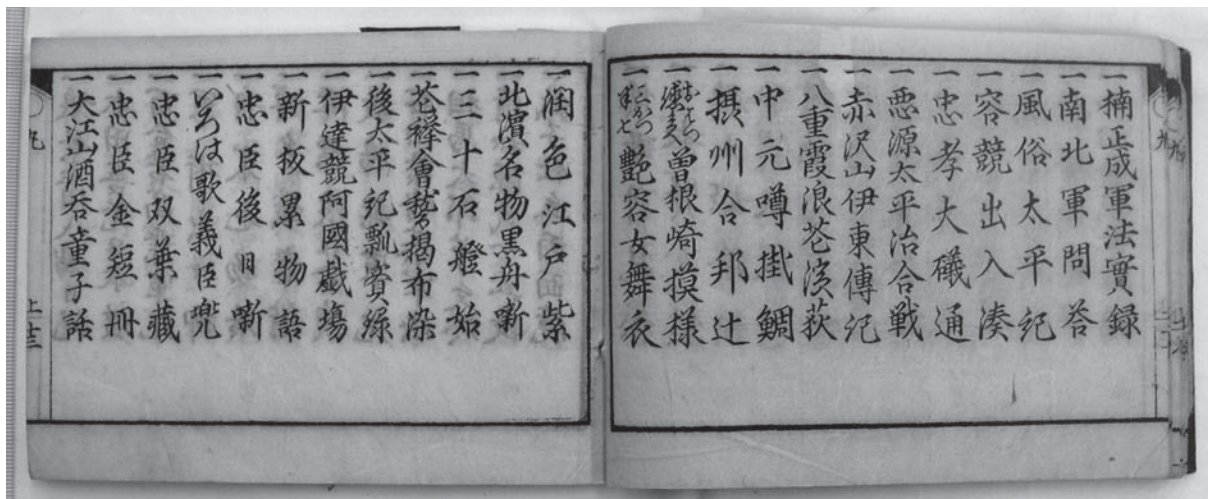 一楠正成軍法實録
一南北軍問答
一風俗太平紀
一容競出入湊
一忠孝大礒通
一悪源太平治合戦
一赤沢山伊東傳紀
一八重霞浪花濱荻
一中元噂掛鯛
一摂州合邦辻
一おはつ徳兵へ曽根崎摸様
一三かつ半七艶容女舞衣
一潤色江戸紫
一北濱名物黒舟噺
一三十石艠始
一花襷會稽掲布染
一後太平記瓢實録
一伊達競阿國戯場
一新板累物語
一忠臣後日噺
一いろは歌義臣兜
一忠臣双葉蔵
一忠臣金短冊
一大江山酒呑童子話
九
上十三
九